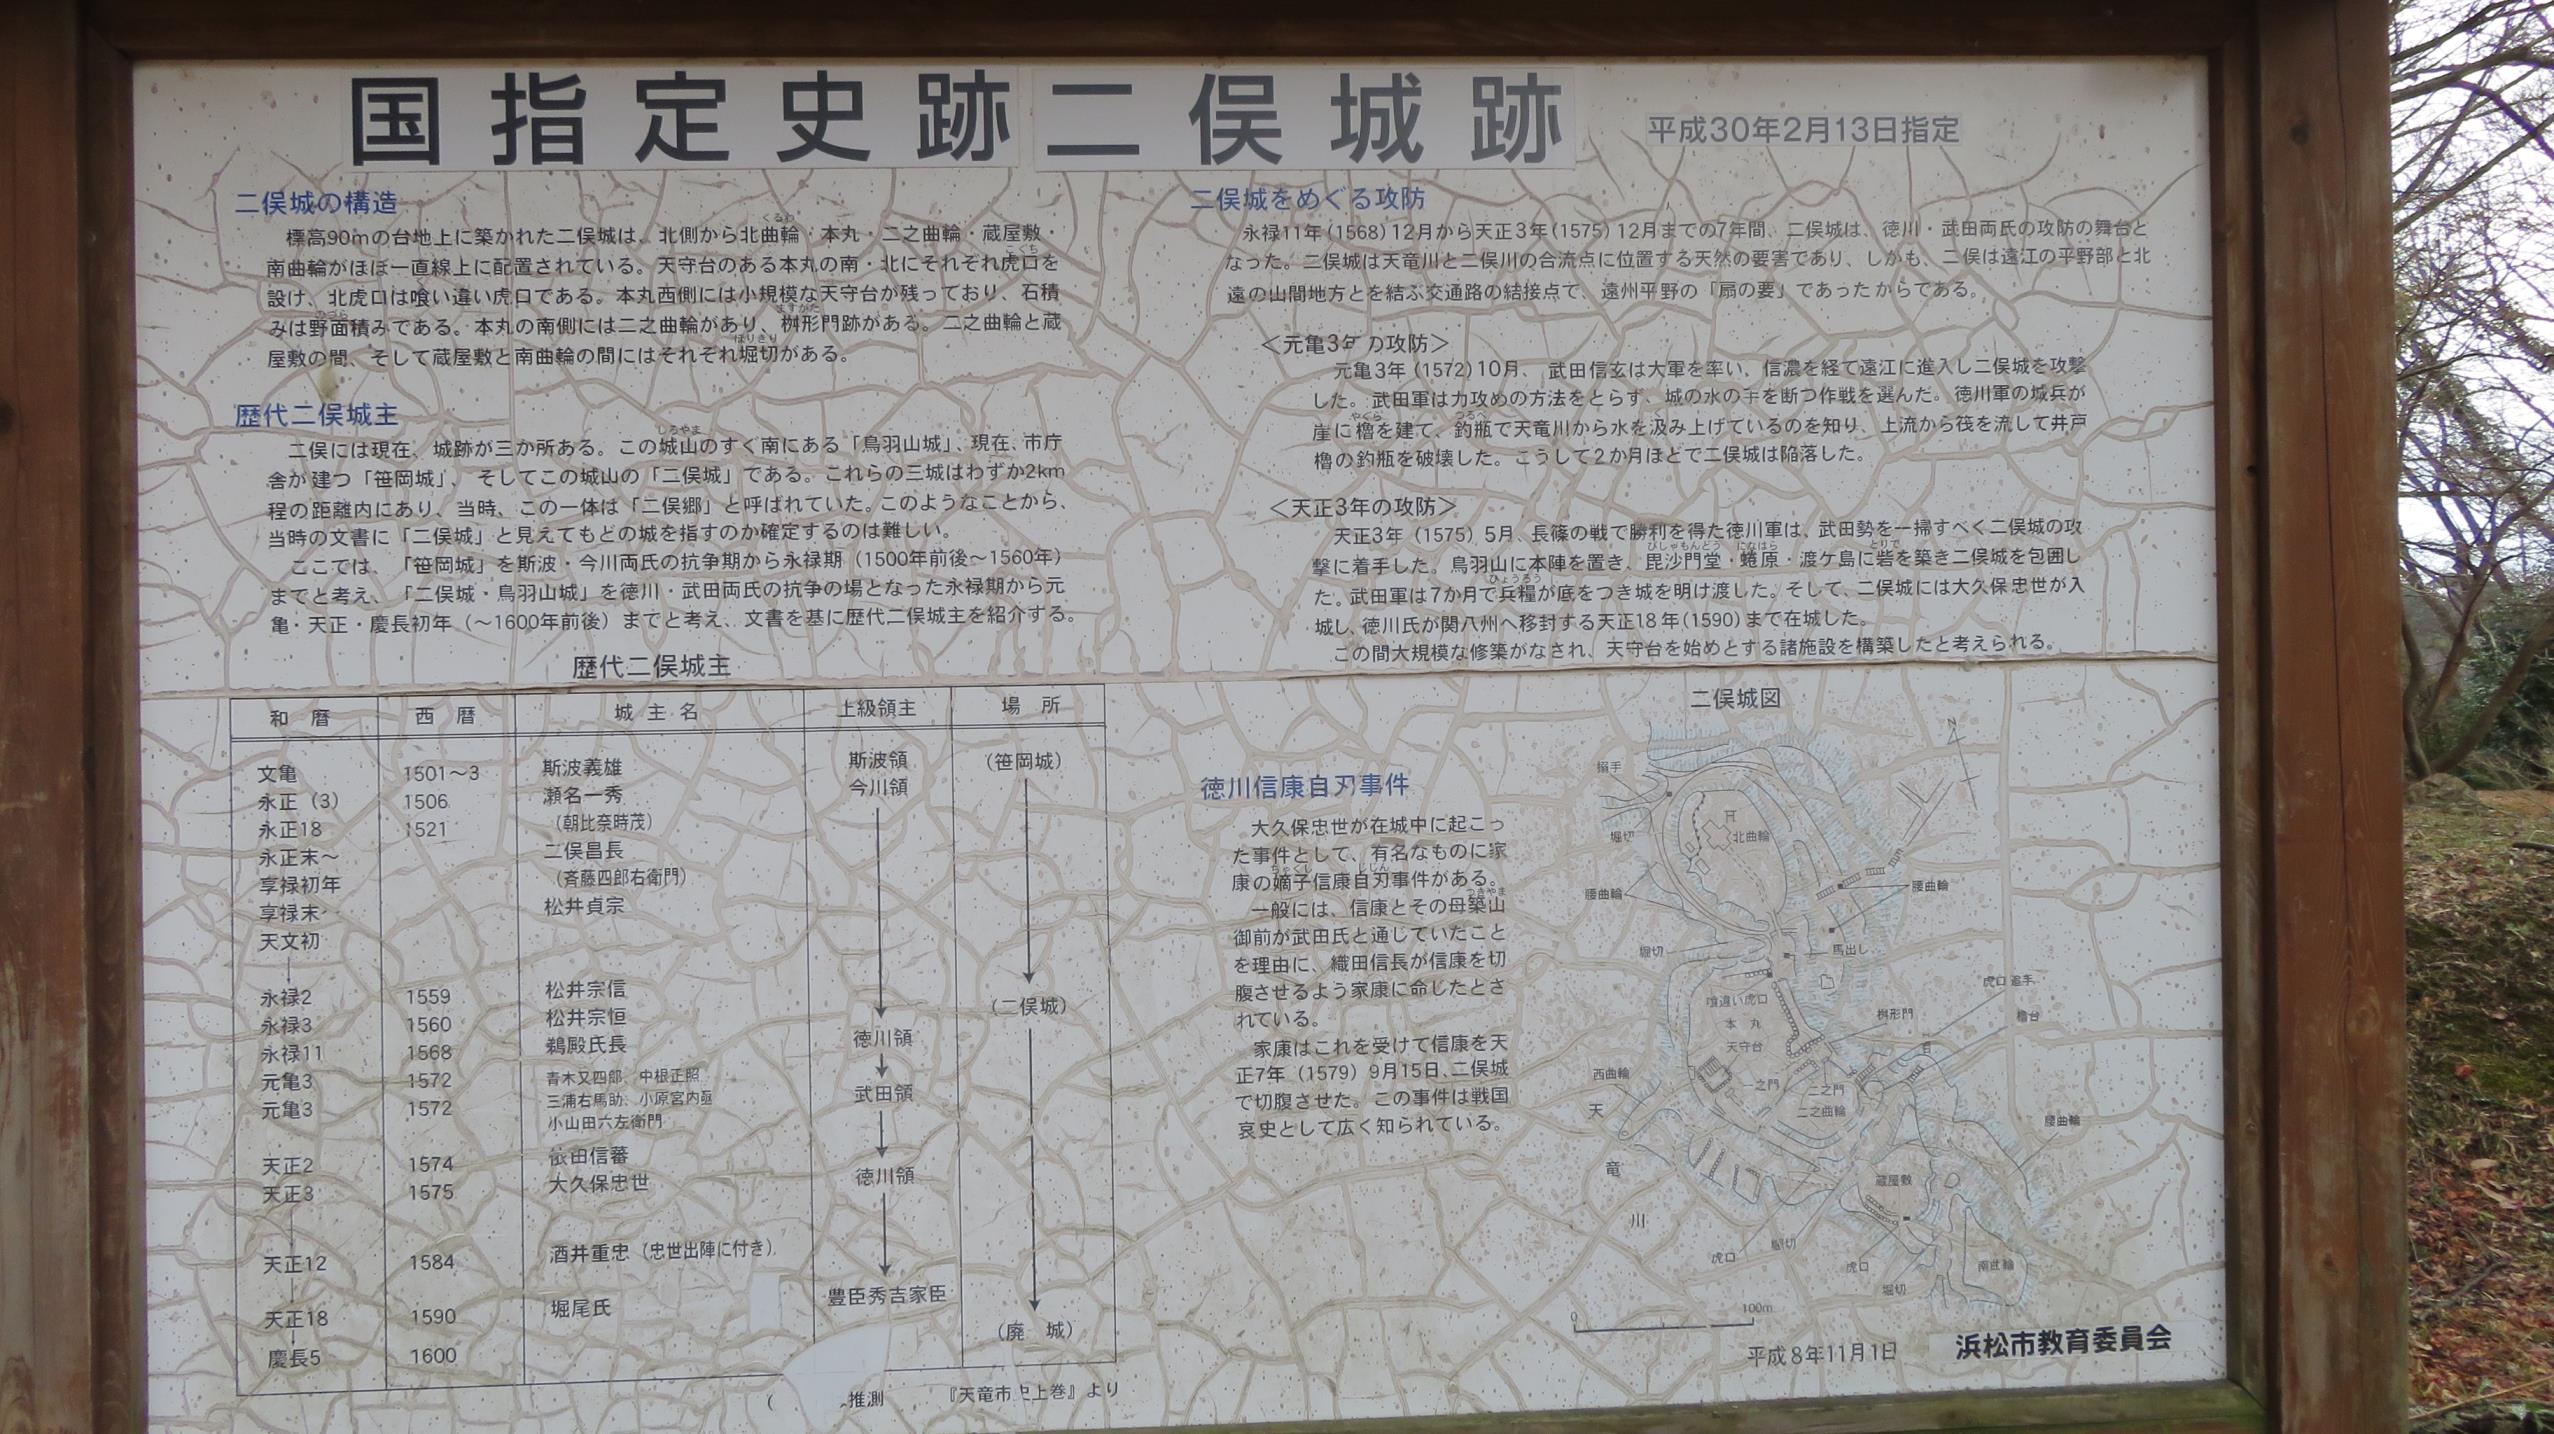 国指定史跡二俣城跡
平成30年2月13日指定
二俣城の構造
標高90mの台地上に築かれた二俣城は、北側から北曲輪・本丸・二之曲輪・蔵屋敷・
南曲輪がほぼ一直線上に配置されている。天守台のある本丸の南・北にそれぞれ虎口を
設け、北虎口は喰い違い虎口である。本丸西側には小規模な天守台が残っており、石積
みは野面積みである。本丸の南側には二之曲輪があり、桝形門跡がある。二之曲輪と蔵
屋敷の間、そして蔵屋敷と南曲輪の間にはそれぞれ堀切がある。
歴代二俣城主
二俣には現在、城跡が三か所ある。この城山のすぐ南にある「鳥羽山城」、現在、市庁
舎が建つ「笹岡城」、そしてこの城山の「二俣城」である。これらの三城はわずか2km
程の距離内にあり、当時、この一体は「二俣郷」と呼ばれていた。このようなことから、
当時の文書に「二俣城」と見えてもどの城を指すのか確定するのは難しい。
ここでは、「笹岡城」を斯波・今川両氏の抗争期から永禄期（1500年前後～1560年）
までと考え、「二俣城・鳥羽山城」を徳川・武田両氏の抗争の場となった永禄期から元
亀・天正・慶長初年（～1600年前後）までと考え、文書を基に歴代二俣城主を紹介する。
歴代二俣城主
和暦 西暦 城主名 上級領主 場所
文亀 1501～3 斯波義雄 斯波領 （笹岡城）
永正（3） 1506 瀬名一秀 今川領
永正18 1521 （朝比奈時茂）
永正末～ 二俣昌長
享禄初年 （斉藤四郎右衛門）
享禄末 松井貞宗
天文初
永禄2 1559 松井宗信 （二俣城）
永禄3 1560 松井宗恒
永禄11 1568 鵜殿氏長 徳川領
元亀3 1572 青木又四郎、中根正照
元亀3 1572 三浦右馬助、小原宮内丞 武田領
小山田六左衛門
天正2 1574 依田信蕃
天正3 1575 大久保忠世 徳川領
天正12 1584 酒井重忠（忠世出陣に付き）
天正18 1590 堀尾氏 豊臣秀吉家臣
慶長5 1600 （廃城）
（ 推測 『天竜市史上巻』より
二俣城をめぐる攻防
永禄11年（1568）12月から天正3年（1575）12月までの7年間、二俣城は、徳川・武田両氏の攻防の舞台と
なった。二俣城は天竜川と二俣川の合流点に位置する天然の要害であり、しかも、二俣は遠江の平野部と北
遠の山間地方とを結ぶ交通路の結接点で、遠州平野の「扇の要」であったからである。
＜元亀3年の攻防＞
元亀3年（1572）10月、武田信玄は大軍を率い、信濃を経て遠江に進入し二俣城を攻撃
した。武田軍は力攻めの方法をとらず、城の水の手を断つ作戦を選んだ。徳川軍の城兵が
崖に櫓を建て、釣瓶で天竜川から水を汲み上げているのを知り、上流から筏を流して井戸
櫓の釣瓶を破壊した。こうして2か月ほどで二俣城は陥落した。
＜天正3年の攻防＞
天正3年（1575）5月、長篠の戦で勝利を得た徳川軍は、武田勢を一掃すべく二俣城の攻
撃に着手した。鳥羽山に本陣を置き、毘沙門堂・蜷原・渡ケ島に砦を築き二俣城を包囲し
た。武田軍は7か月で兵糧が底をつき城を明け渡した。そして、二俣城には大久保忠世が入
城し、徳川氏が関八州へ移封する天正18年（1590）まで在城した。
この間大規模な修築がなされ、天守台を始めとする諸施設を構築したと考えられる。
徳川信康自刃事件
大久保忠世が在城中に起こっ
た事件として、有名なものに家
康の嫡子信康自刃事件がある。
一般には、信康とその母築山
御前が武田氏と通していたこと
を理由に、織田信長が信康を切
腹させるよう家康に命したとさ
れている。
家康はこれを受けて信康を天
正7年（1579）9月15日、二俣城
で切腹させた。この事件は戦国
哀史として広く知られている。
二俣城図
N
搦手
堀切
北曲輪
腰曲輪
腰曲輪
堀切
馬出し
喰違い虎口
虎口 追手
本丸
桝形門
櫓台
天守台
西曲輪
一之門
二之門
二之曲輪
腰曲輪
天竜川
蔵屋敷
虎口
堀切
虎口
堀切
南曲輪
0 100m
平成8年11月1日
浜松市教育委員会